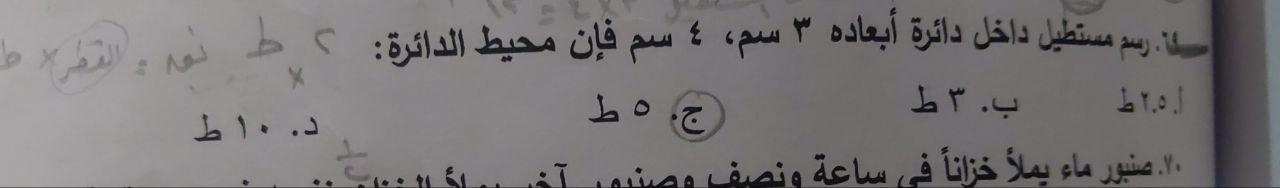 رسم مستطيل داخل دائرة أبعاده ٣ سم، ٤ سم فإن محيط الدائرة: ٢ × ط نق = القطر × ط
أ. ٢.٥ ط ب. ٣ ط ج. ٥ ط د. ١٠ ط
٧٠. صنبور ماء يملأ خزاناً في ساعة ونصف وصنبور آخر يملأ